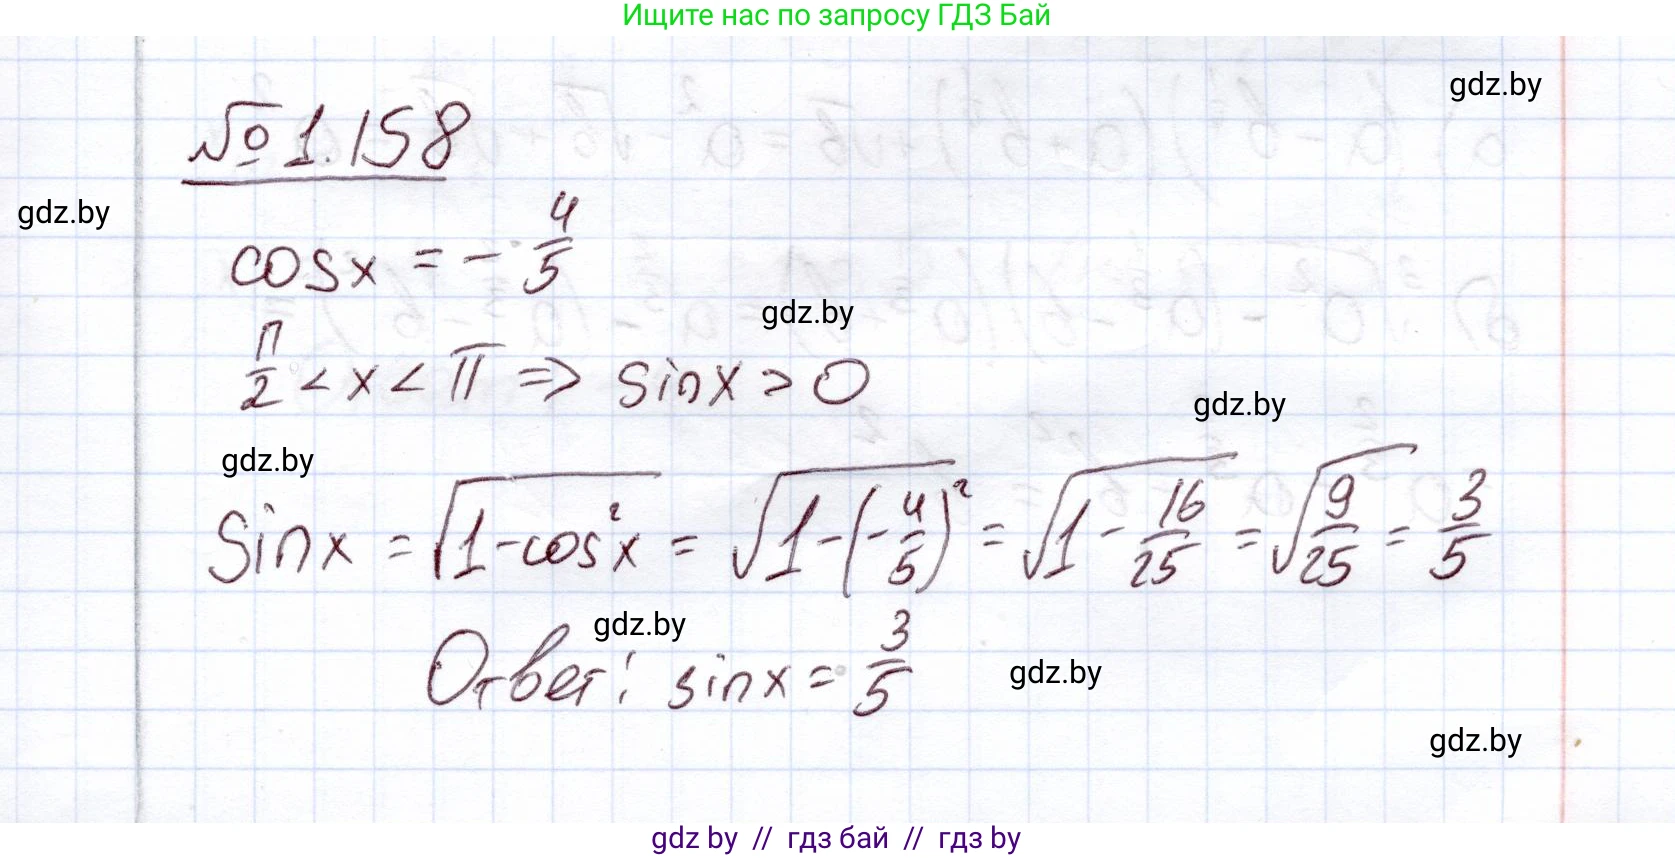 Ищите нас по запросу ГДЗ Бай
gdz.by
№ 1.158
gdz.by
cosx = - 4/5
gdz.by
π/2 < x < π => sinx > 0
gdz.by
gdz.by
Sinx = √(1-cos²x) = √(1-(-4/5)²) = √(1-16/25) = √(9/25) = 3/5
gdz.by
Ответ: sinx = 3/5
gdz.by
gdz.by
gdz by // гдз бай // гдз by